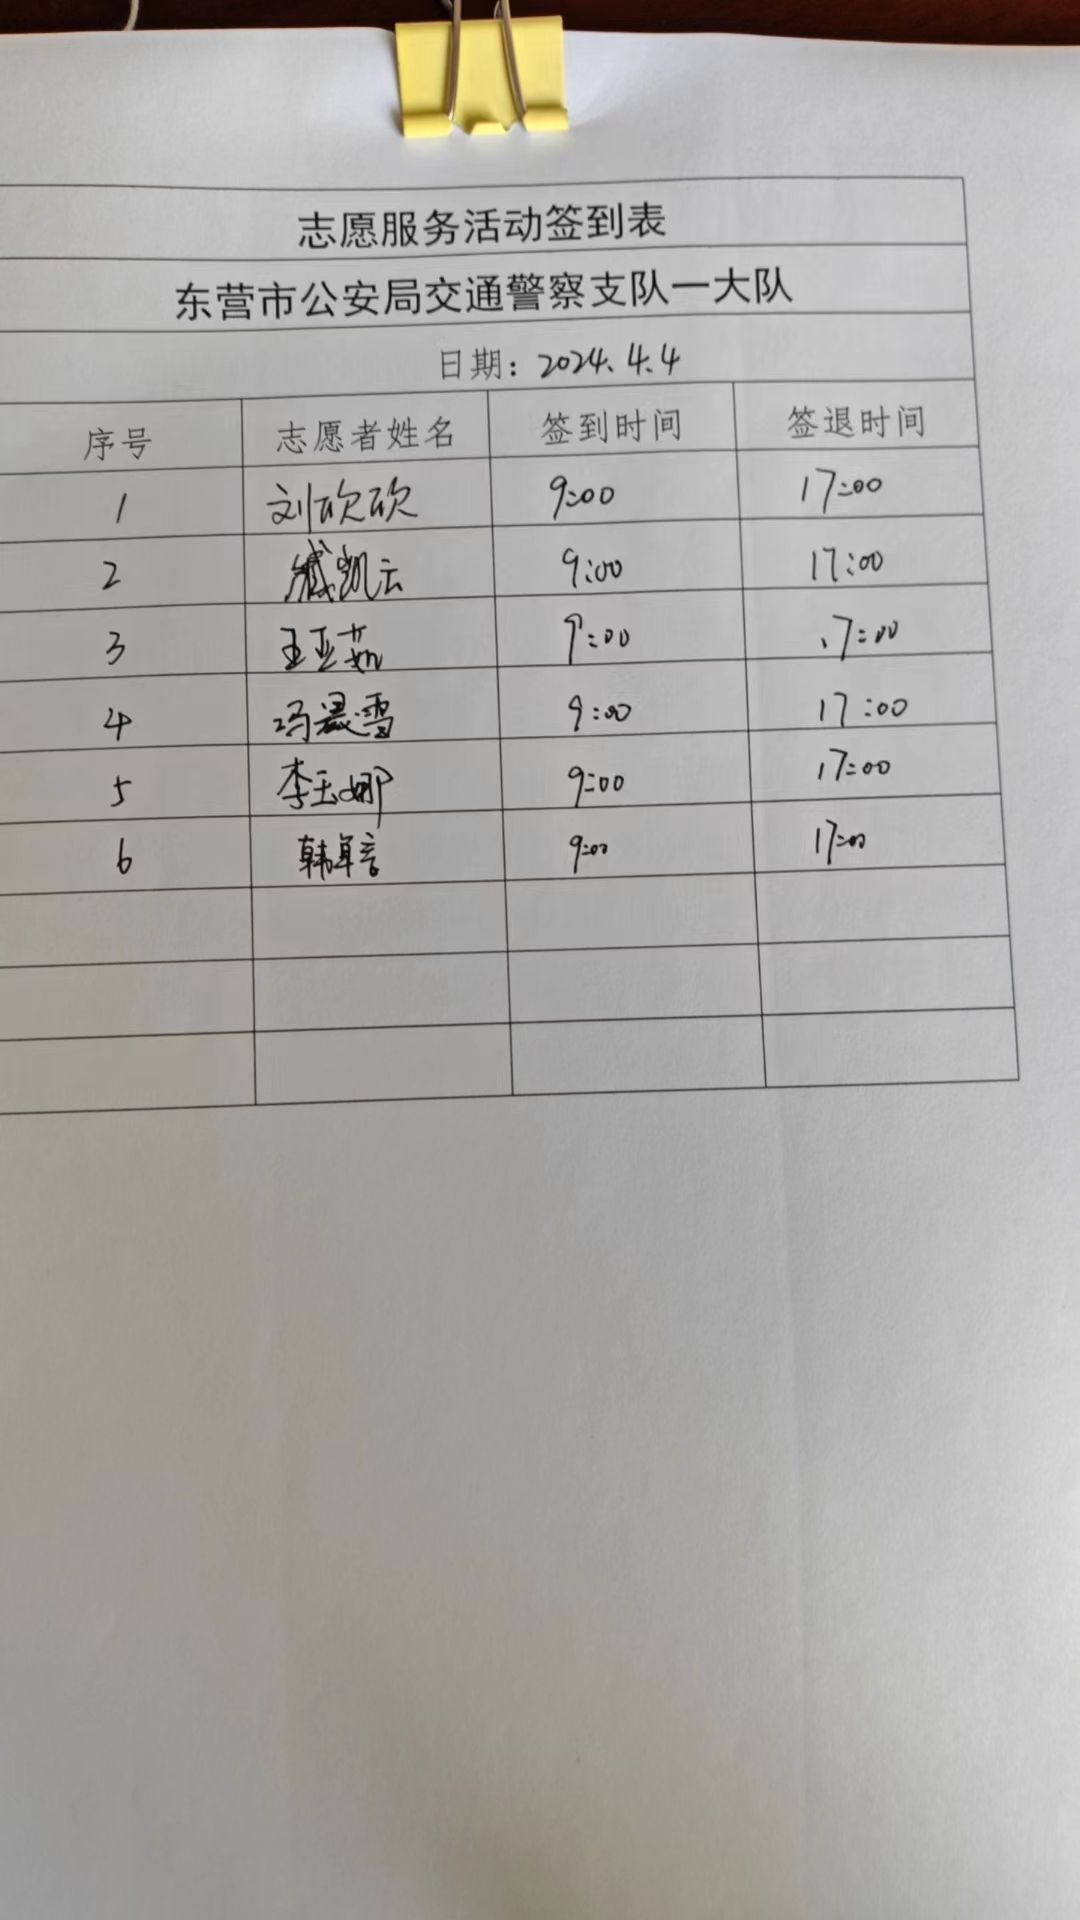 志愿服务活动签到表
东营市公安局交通警察支队一大队
日期：2024.4.4
序号 志愿者姓名 签到时间 签退时间
1 刘欣欣 9:00 17:00
2 臧凯云 9:00 17:00
3 王亚茹 9:00 17:00
4 冯晨雪 9:00 17:00
5 李玉娜 9:00 17:00
6 韩卓言 9:00 17:00